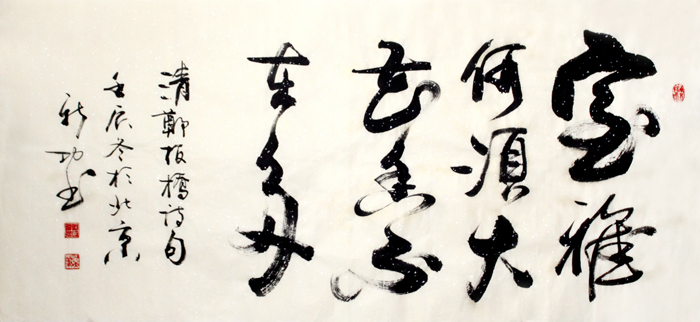 室雅
何須大
花香不
在多
清鄭板橋詩句
壬辰冬於北京
新功书